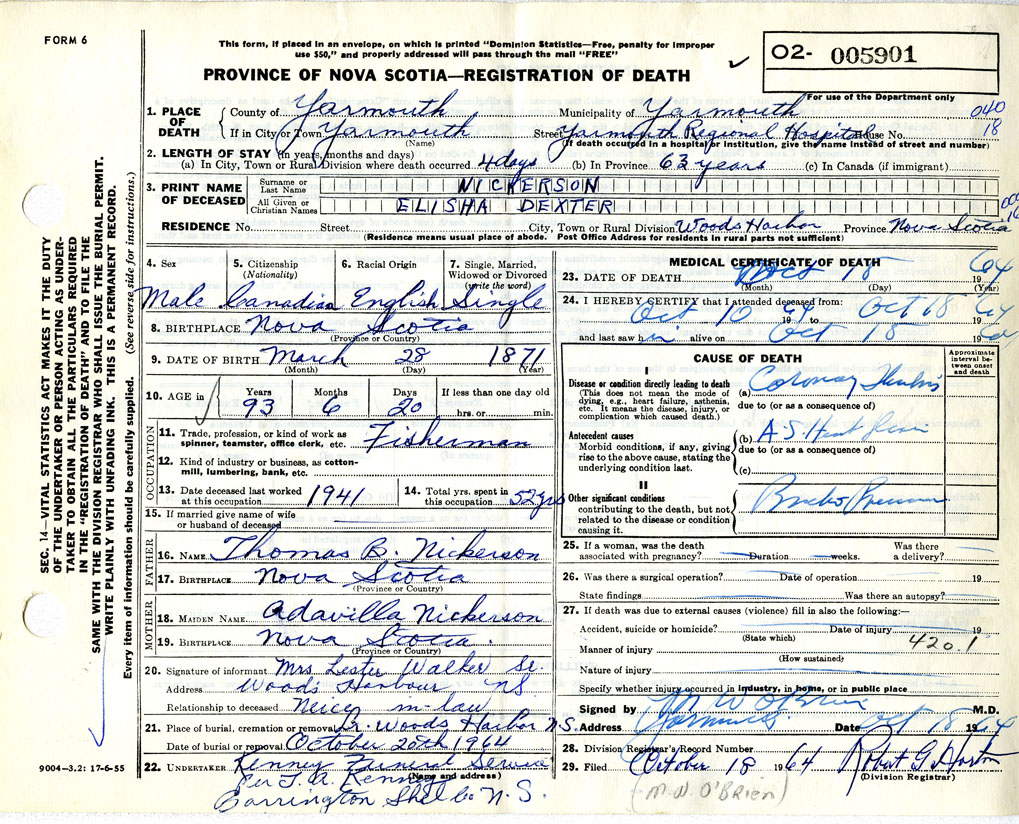 FORM 6
This form, if placed in an envelope, on which is printed "Dominion Statistics—Free, penalty for improper
use $50," and properly addressed will pass through the mail "FREE"
O2- 005901
PROVINCE OF NOVA SCOTIA—REGISTRATION OF DEATH
For use of the Department only
1. PLACE OF DEATH
County of Yarmouth Municipality of Yarmouth 040
If in City or Town Yarmouth Street Yarmouth Regional Hospital House No. 18
(Name) (If death occurred in a hospital or institution, give the name instead of street and number)
2. LENGTH OF STAY (in years, months and days)
(a) In City, Town or Rural Division where death occurred 4 days (b) In Province 63 years (c) In Canada (if immigrant)
3. PRINT NAME OF DECEASED
Surname or Last Name NICKERSON
All Given or Christian Names ELISHA DEXTER
RESIDENCE No. Street City, Town or Rural Division Woods Harbor Province Nova Scotia
(Residence means usual place of abode. Post Office Address for residents in rural parts not sufficient)
4. Sex 5. Citizenship (Nationality) 6. Racial Origin 7. Single, Married, Widowed or Divorced (write the word)
Male Canadian English Single
8. BIRTHPLACE Nova Scotia
(Province or Country)
9. DATE OF BIRTH March 28 1871
(Month) (Day) (Year)
10. AGE in Years Months Days If less than one day old
93 6 20 hrs. or min.
OCCUPATION
11. Trade, profession, or kind of work as spinner, teamster, office clerk, etc. Fisherman
12. Kind of industry or business, as cotton-mill, lumbering, bank, etc.
13. Date deceased last worked at this occupation 1941
14. Total yrs. spent in this occupation 52 yrs
15. If married give name of wife or husband of deceased
FATHER
16. NAME Thomas B. Nickerson
17. BIRTHPLACE Nova Scotia
(Province or Country)
MOTHER
18. MAIDEN NAME Adavilla Nickerson
19. BIRTHPLACE Nova Scotia.
(Province or Country)
20. Signature of informant Mrs Lester Walker Sr.
Address Woods Harbour NS
Relationship to deceased Neice in-law
21. Place of burial, cremation or removal Lr. Woods Harbor N.S.
Date of burial or removal October 20th 1964
22. UNDERTAKER Kenney Funeral Service
(Name and address)
Per J. A. Kenney
Barrington Shelb. N.S.
MEDICAL CERTIFICATE OF DEATH
23. DATE OF DEATH Oct 18 1964
(Month) (Day) (Year)
24. I HEREBY CERTIFY that I attended deceased from:
Oct 10 1964 to Oct 18 1964
and last saw him alive on Oct 18 1964
CAUSE OF DEATH
Approximate interval between onset and death
I
Disease or condition directly leading to death
(This does not mean the mode of dying, e.g., heart failure, asthenia, etc. It means the disease, injury, or complication which caused death.)
(a) Coronary
due to (or as a consequence of)
Antecedent causes
Morbid conditions, if any, giving rise to the above cause, stating the underlying condition last.
(b) A.S. Heart
due to (or as a consequence of)
(c)
II
Other significant conditions
contributing to the death, but not related to the disease or condition causing it.
25. If a woman, was the death associated with pregnancy? Duration weeks. Was there a delivery?
26. Was there a surgical operation? Date of operation 19
State findings Was there an autopsy?
27. If death was due to external causes (violence) fill in also the following:—
Accident, suicide or homicide? Date of injury 19
(State which)
Manner of injury 420.1
(How sustained)
Nature of injury
Specify whether injury occurred in industry, in home, or in public place
Signed by M W O'Brien M.D.
Address Yarmouth Date Oct 18 1964
28. Division Registrar's Record Number
29. Filed October 18 1964 Robert G. Horton
(Division Registrar)
(M.W. O'BRIEN)
SEC. 14—VITAL STATISTICS ACT MAKES IT THE DUTY
OF THE UNDERTAKER OR PERSON ACTING AS UNDER-
TAKER TO OBTAIN ALL THE PARTICULARS REQUIRED
IN THE "REGISTRATION OF DEATH" AND TO FILE THE
SAME WITH THE DIVISION REGISTRAR WHO SHALL ISSUE THE BURIAL PERMIT.
WRITE PLAINLY WITH UNFADING INK. THIS IS A PERMANENT RECORD.
Every item of information should be carefully supplied. (See reverse side for instructions.)
9004-3.2: 17-6-55